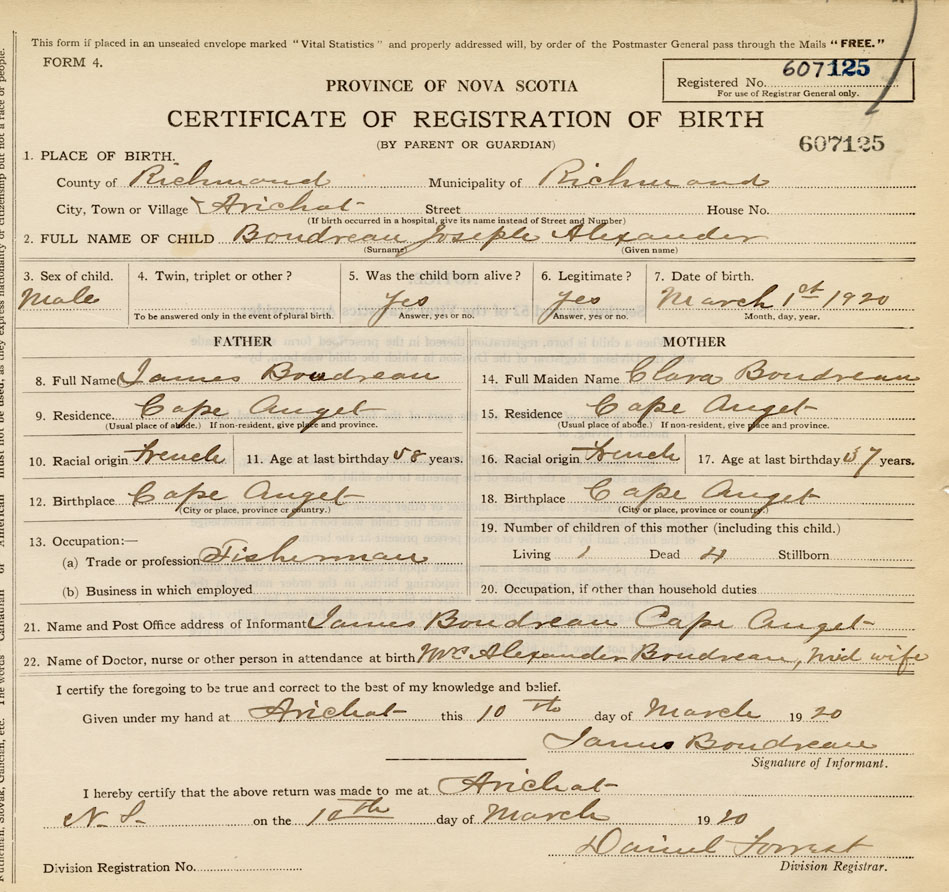 This form if placed in an unsealed envelope marked "Vital Statistics" and properly addressed will, by order of the Postmaster General pass through the Mails "FREE."
FORM 4.
Registered No. 607125
For use of Registrar General only.
PROVINCE OF NOVA SCOTIA
CERTIFICATE OF REGISTRATION OF BIRTH
(BY PARENT OR GUARDIAN)
607125
1. PLACE OF BIRTH.
County of Richmond Municipality of Richmond
City, Town or Village Arichat Street House No.
(If birth occurred in a hospital, give its name instead of Street and Number)
2. FULL NAME OF CHILD Boudreau Joseph Alexander
(Surname) (Given name)
3. Sex of child. Male
4. Twin, triplet or other?
To be answered only in the event of plural birth.
5. Was the child born alive? Yes
Answer, yes or no.
6. Legitimate? Yes
Answer, yes or no.
7. Date of birth. March 1st 1920
Month, day, year.
FATHER
8. Full Name James Boudreau
9. Residence. Cape Auget
(Usual place of abode.) If non-resident, give place and province.
10. Racial origin French 11. Age at last birthday 58 years.
12. Birthplace Cape Auget
(City or place, province or country.)
13. Occupation:—
(a) Trade or profession Fisherman
(b) Business in which employed
MOTHER
14. Full Maiden Name Clara Boudreau
15. Residence Cape Auget
(Usual place of abode.) If non-resident, give place and province.
16. Racial origin French 17. Age at last birthday 37 years.
18. Birthplace Cape Auget
(City or place, province or country.)
19. Number of children of this mother (including this child.)
Living 1 Dead 4 Stillborn
20. Occupation, if other than household duties
21. Name and Post Office address of Informant James Boudreau Cape Auget
22. Name of Doctor, nurse or other person in attendance at birth Mrs Alexander Boudreau, Mid wife
I certify the foregoing to be true and correct to the best of my knowledge and belief.
Given under my hand at Arichat this 10th day of March 1920
James Boudreau
Signature of Informant.
I hereby certify that the above return was made to me at Arichat
N.S. on the 10th day of March 1920
Daniel Forrest
Division Registration No. Division Registrar.